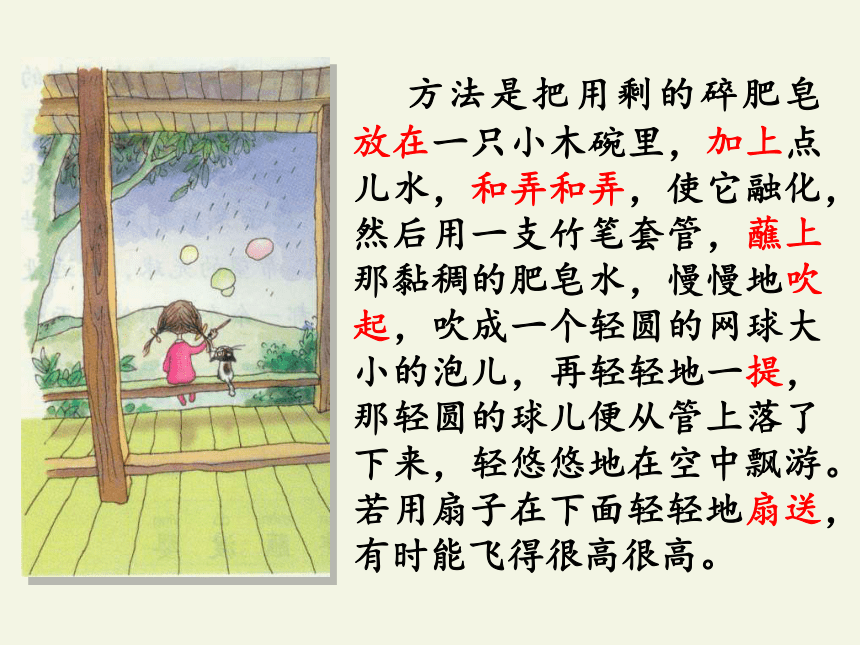 方法是把用剩的碎肥皂
放在一只小木碗里，加上点
儿水，和弄和弄，使它融化，
然后用一支竹笔套管，蘸上
那黏稠的肥皂水，慢慢地吹
起，吹成一个轻圆的网球大
小的泡儿，再轻轻地一提，
那轻圆的球儿便从管上落了
下来，轻悠悠地在空中飘游。
若用扇子在下面轻轻地扇送，
有时能飞得很高很高。